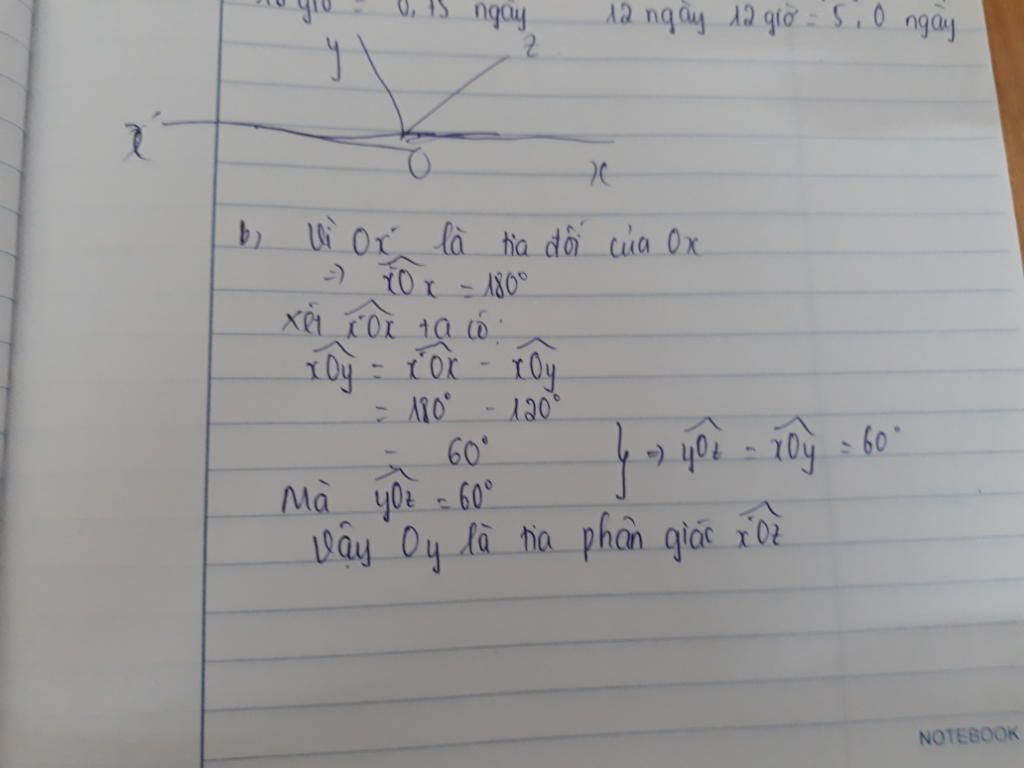 giờ = 0,75 ngày 12 ngày 12 giờ = 5,0 ngày
y z
x' O x
b, Vì Ox' là tia đối của Ox
=> x'Ox = 180°
xét x'Ox ta có:
x'Oy = x'Ox - xOy
= 180° - 120°
= 60° } => yOz = x'Oy = 60°
Mà yOz = 60°
Vậy Oy là tia phân giác x'Oz
NOTEBOOK